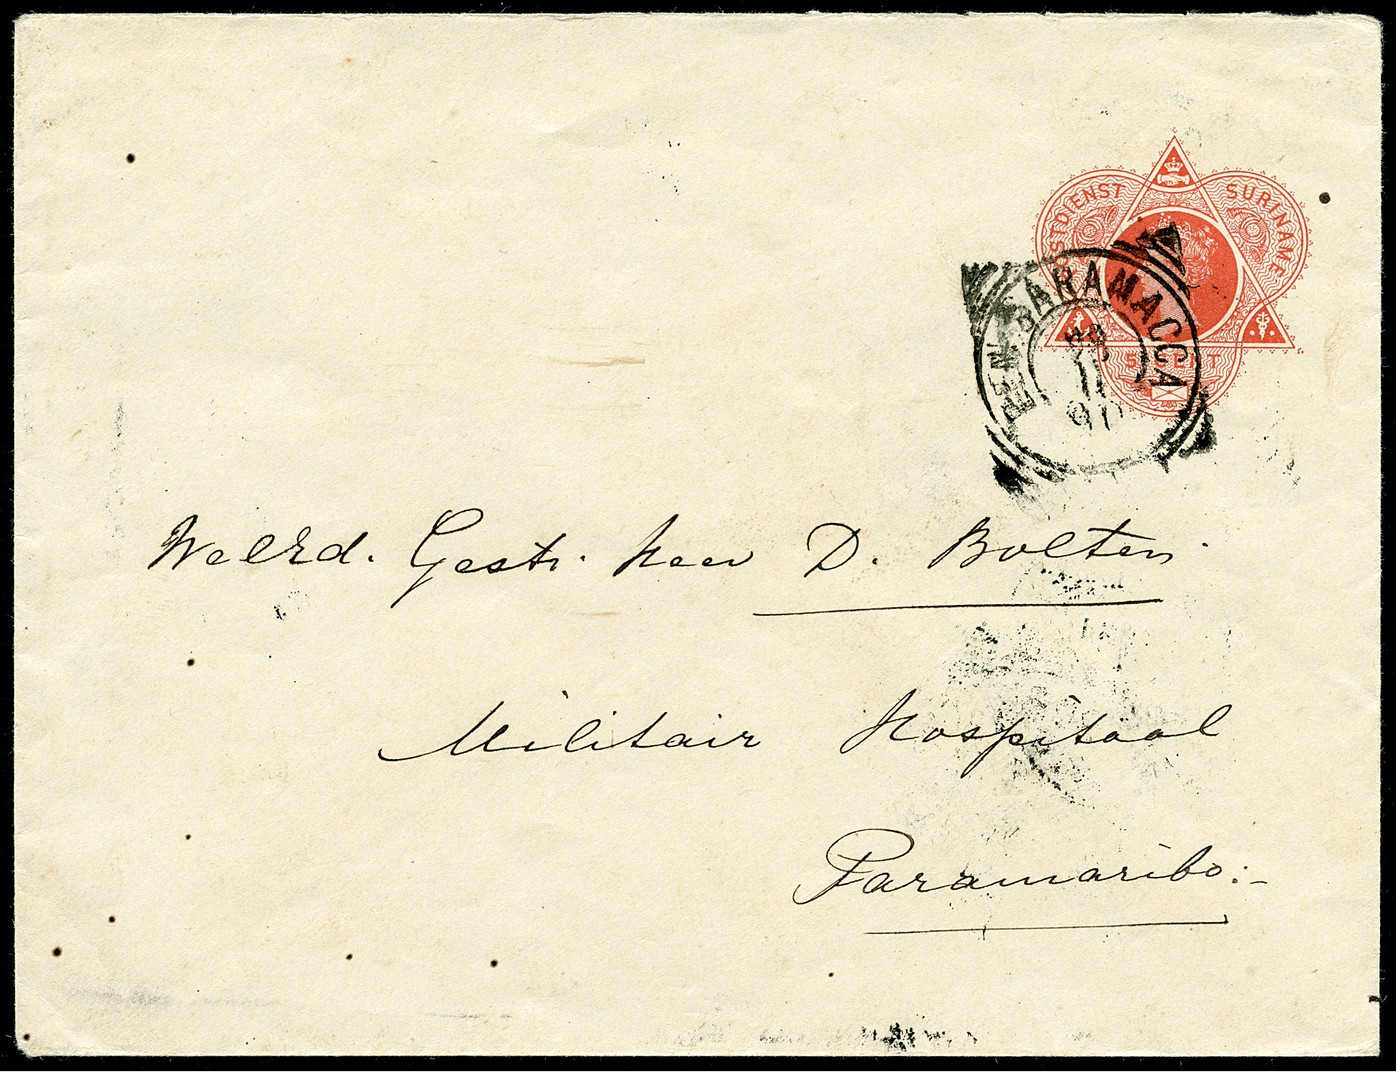 POSTDIENST SURINAME
5 CENT
SARAMACCA
11
Weled. Gestr. Heer D. Bolten
Militair Hospitaal
Paramaribo:-